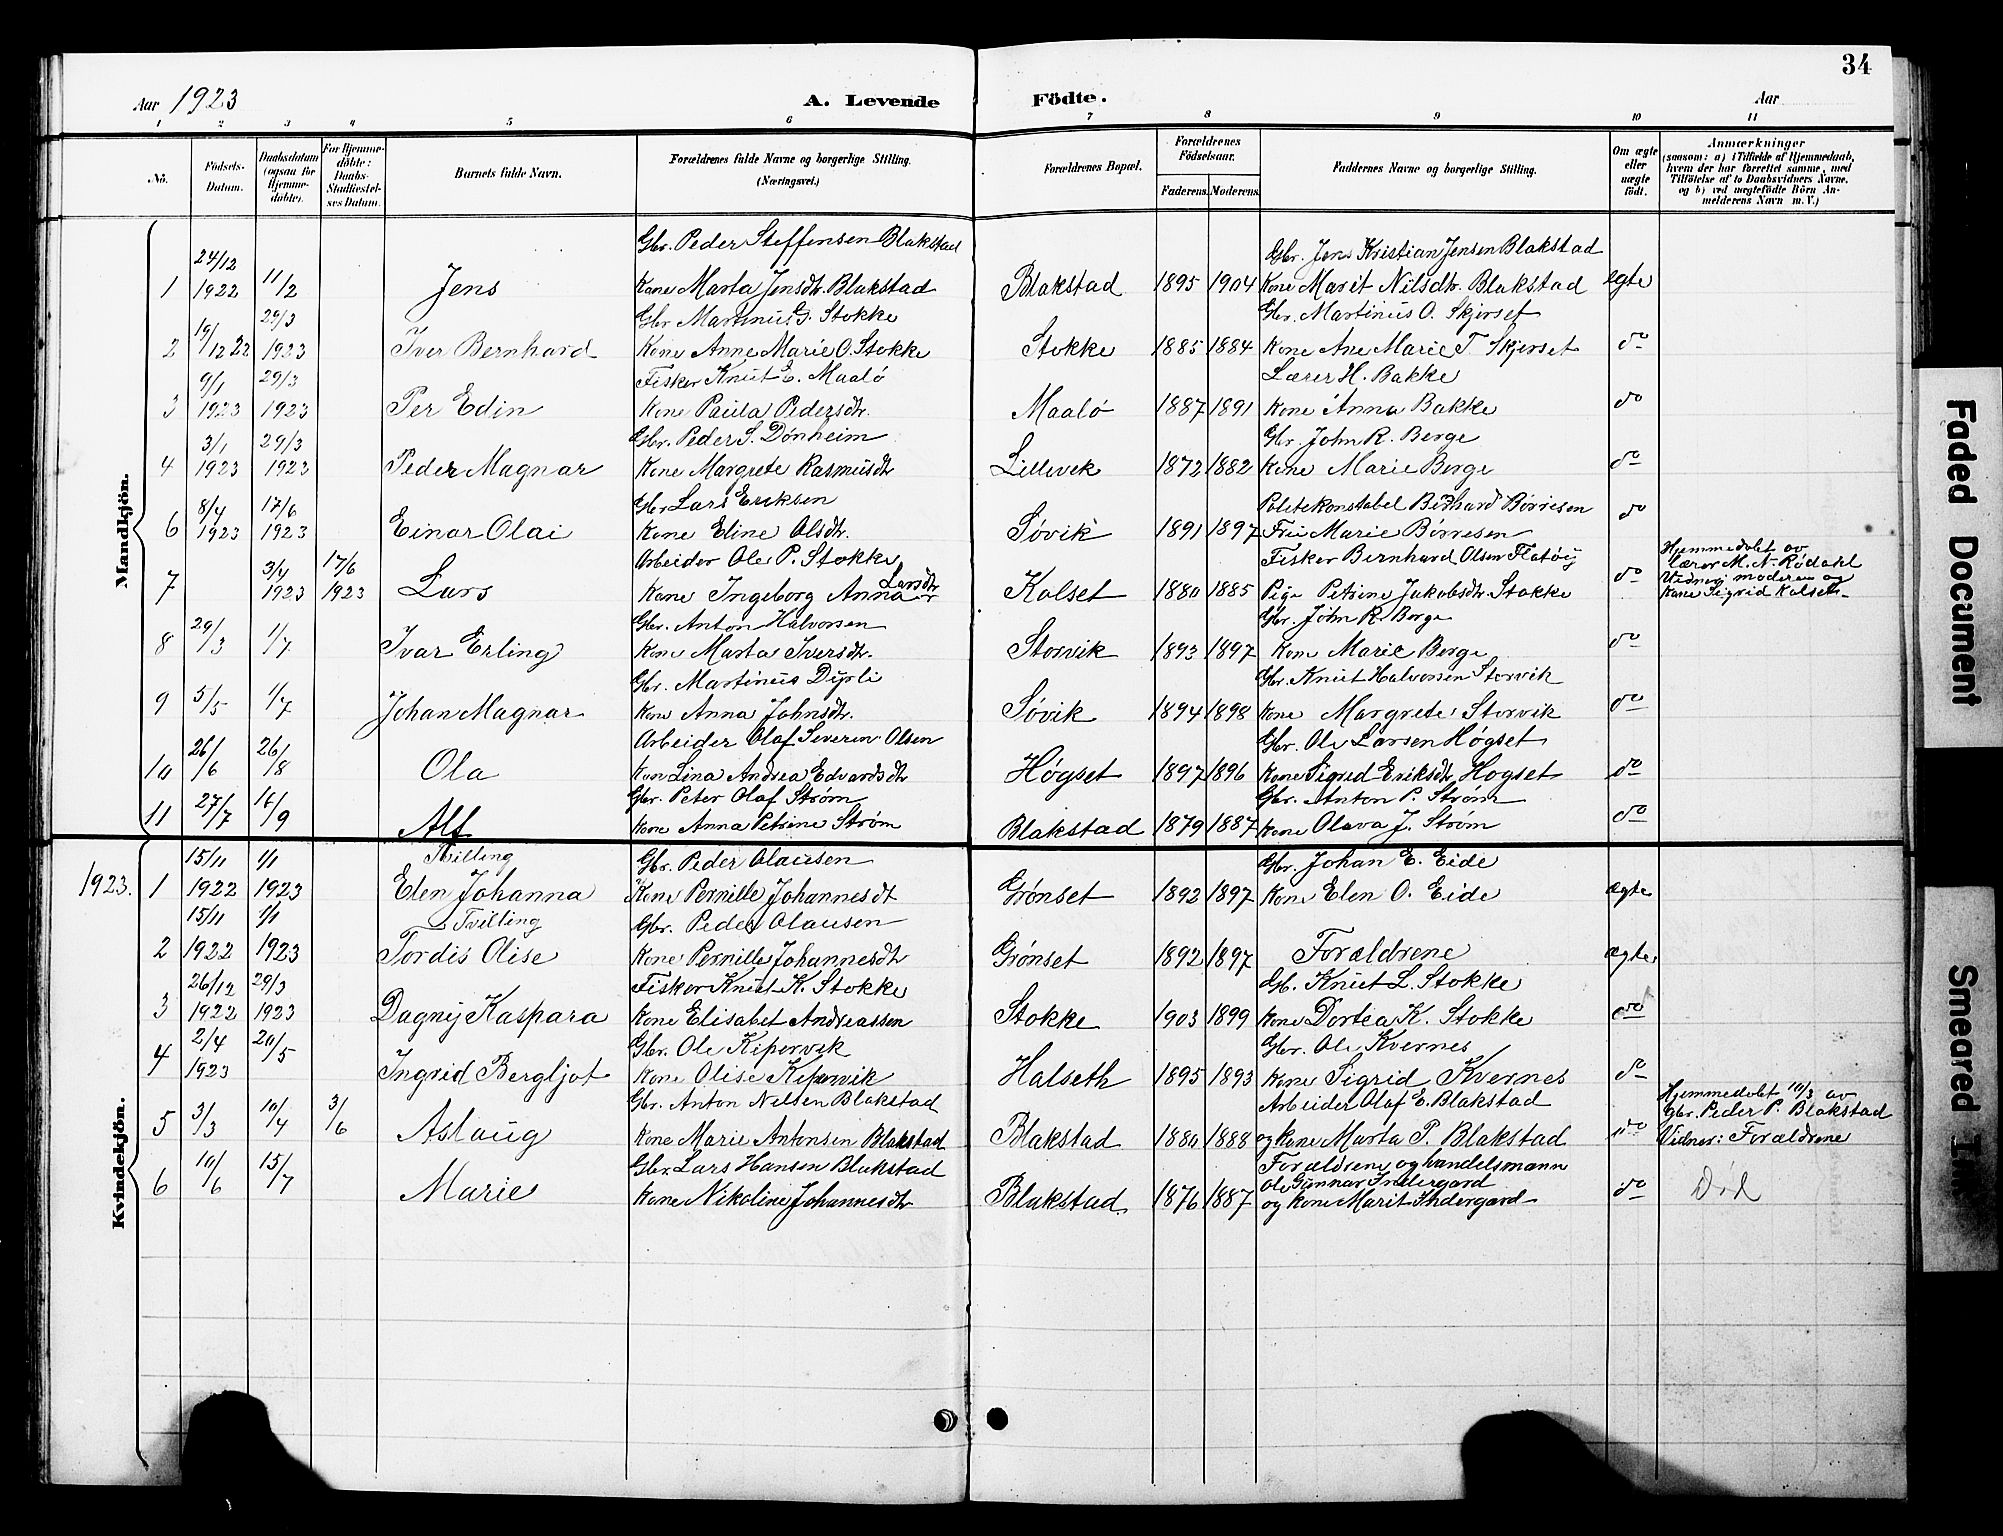 34
Aar 1923 A. Levende Födte. Aar
1 2 3 4 5 6 7 8 9 10 11
No. Födsels-Datum. Daabsdatum (ogsaa for Hjemmedöbte). For Hjemmedöbte: Daabs-Stadfæstelses Datum. Barnets fulde Navn. Forældrenes fulde Navne og borgerlige Stilling. (Næringsvei.) Forældrenes Bopæl. Forældrenes Födselsaar. Faderens. Moderens. Faddernes Navne og borgerlige Stilling. Om ægte eller uægte født. Anmærkninger (saasom: a) i Tilfælde af Hjemmedaab, hvem der har forrettet samme, med Tilföielse af to Daabsvidners Navne, og b) ved uegtefödte Börn Anmelderens Navn m. V.)
Mandkjön.
24/12 Gbr. Peder Steffensen Blakstad Gbr. Jens Kristian Jensen Blakstad
1 1922 11/2 Jens Kone Marta Jensdtr. Blakstad Blakstad 1895 1904 Kone Marit Nilsdtr. Blakstad egte
19/ 29/3 Gbr. Martinus G. Stokke Gbr. Martinus O. Skjerset
2 12 22 1923 Iver Bernhard Kone Anne Marie O. Stokke Stokke 1885 1884 Kone Ane Marie T Skjerset do
9/1 29/3 Fisker Knut E. Maalö Lærer H. Bakke
3 1923 1923 Per Edin Kone Paula Pedersdtr. Maalö 1887 1891 Kone Anna Bakke do
3/1 29/3 Gbr. Peder S. Dønheim Gbr. John R. Berge
4 1923 1923 Peder Magnar Kone Margrete Rasmusdtr Lillevik 1872 1882 Kone Marie Berge do
8/4 17/6 Gbr Lars Eriksen Politikonstabel Bernhard Børresen
6 1923 1923 Einar Olai Kone Eline Olsdtr. Søvik 1891 1897 Fru Marie Børresen do
3/4 17/6 Arbeider Ole P. Stokke Fisker Bernhard Olsen Flatöy Hjemmedöbt av
7 1923 1923 Lars Kone Ingeborg Anna Larsdtr Kolset 1880 1885 Pige Petrine Jakobsdtr. Stokke do lærer M. N. Rödahl
Vidner moderen og
Kone Sigrid Kolseth
29/3 1/7 Gbr. Anton Halvorsen Gbr. John R. Berge
8 Ivar Erling Kone Marta Iversdtr. Storvik 1893 1897 Kone Marie Berge do
Gbr. Martinus Dyrli Gbr. Knut Halvorsen Storvik
9 5/5 1/7 Johan Magnar Kone Anna Johnsdtr. Søvik 1894 1898 Kone Margrete Storvik do
Arbeider Olaf Severin Olsen Gbr. Ole Larsen Høgset
10 26/6 26/8 Ola Kone Lina Andrea Edvardsdtr Høgset 1897 1896 Kone Sigrid Eriksdtr. Hogset do
Gbr. Peter Olaf Strøm Gbr. Anton P. Strøm
11 27/7 16/9 Alf Kone Anna Petrine Strøm Blakstad 1879 1887 Kone Olava J. Strøm do
Kvindekjön.
15/11 1/1 Tvilling Gbr. Peder Olausen Gbr. Johan E. Eide
1923. 1 1922 1923 Elen Johanna Kone Pernille Johannesdt Grønset 1892 1897 Kone Elen O. Eide ægte
15/11 1/1 Tvilling Gbr. Peder Olausen
2 1922 1923 Tordis Olise Kone Pernille Johannesdt Grønset 1892 1897 Forældrene ægte
26/12 29/3 Fisker Knut K. Stokke Gb. Knut L. Stokke
3 1922 1923 Dagny Kaspara Kone Elisabet Andreassen Stokke 1903 1899 Kone Dortea K. Stokke do
2/4 20/5 Gbr. Ole Kipervik Gbr. Ole Kvernes
4 1923 Ingrid Bergljot Kone Olise Kipervik Halseth 1895 1893 Kone Sigrid Kvernes do
Gbr. Anton Nelsen Blakstad Arbeider Olaf E. Blakstad Hjemmedöbt 10/3 av
Gbr. Peder P. Blakstad
5 3/3 10/4 3/6 Aslaug Kone Marie Antonsen Blakstad Blakstad 1880 1888 og kone Marta P. Blakstad do Vidner: Forældrene
Gbr. Lars Hansen Blakstad Forældrene og handelsmann
Ole Gunnar Indergard
6 10/6 15/7 Marie Kone Nikoline Johannesdtr Blakstad 1876 1887 og kone Marit Indergard do Död
Faded Document
Smeared Ink